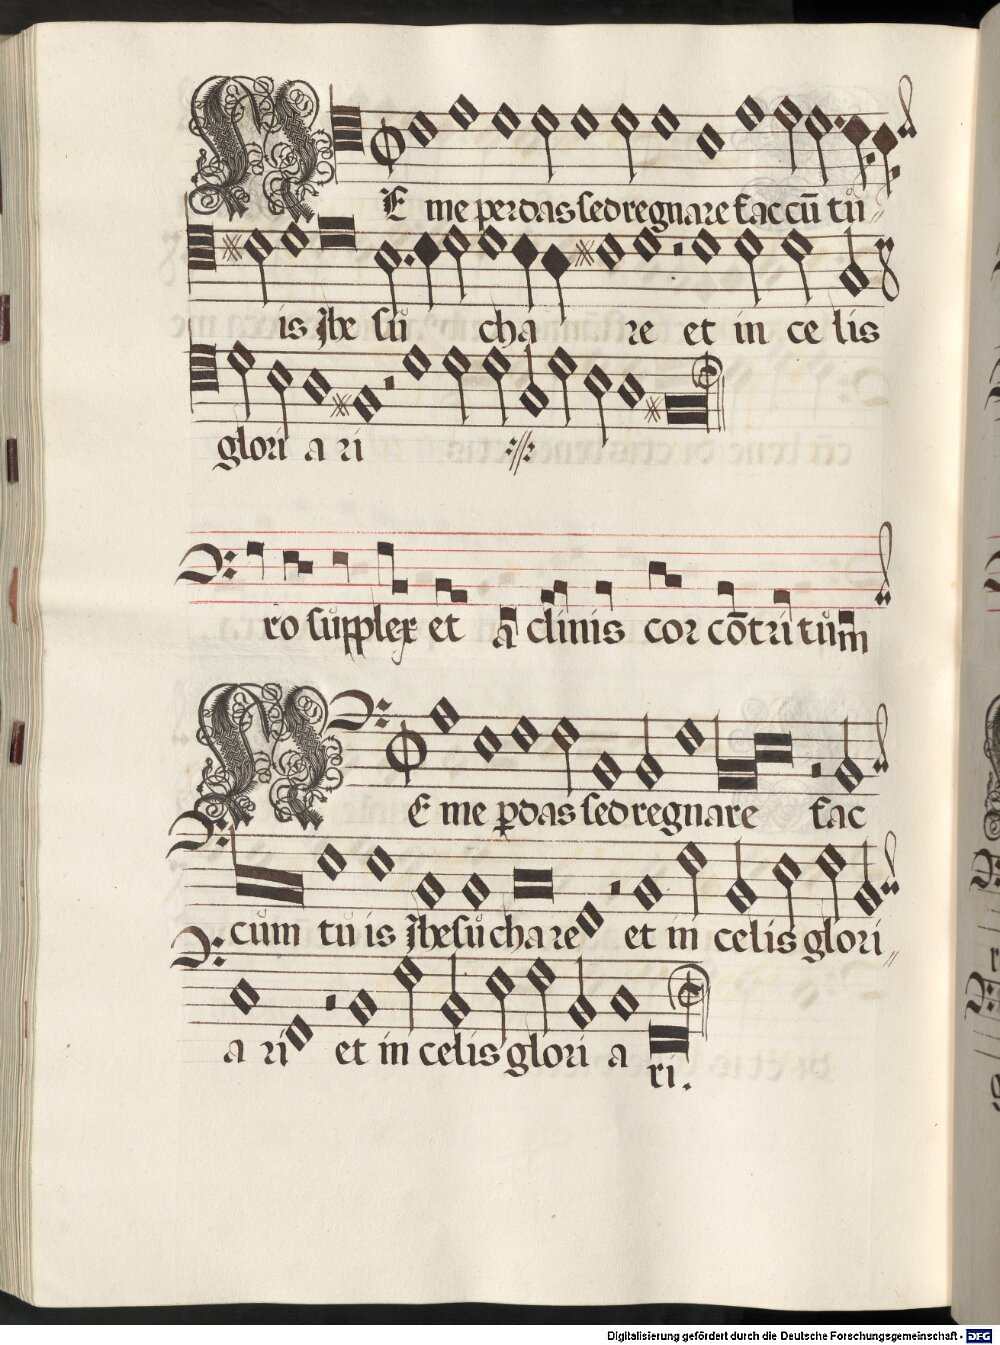 NE me perdas sed regnare fac cū tu
is ihesu chare et in celis
gloriari
Oro supplex et acclinis cor cōtritum
NE me pdas sed regnare fac
cum tuis ihesu chare et in celis glori
ari et in celis gloriari.
Digitalisierung gefördert durch die Deutsche Forschungsgemeinschaft - DFG